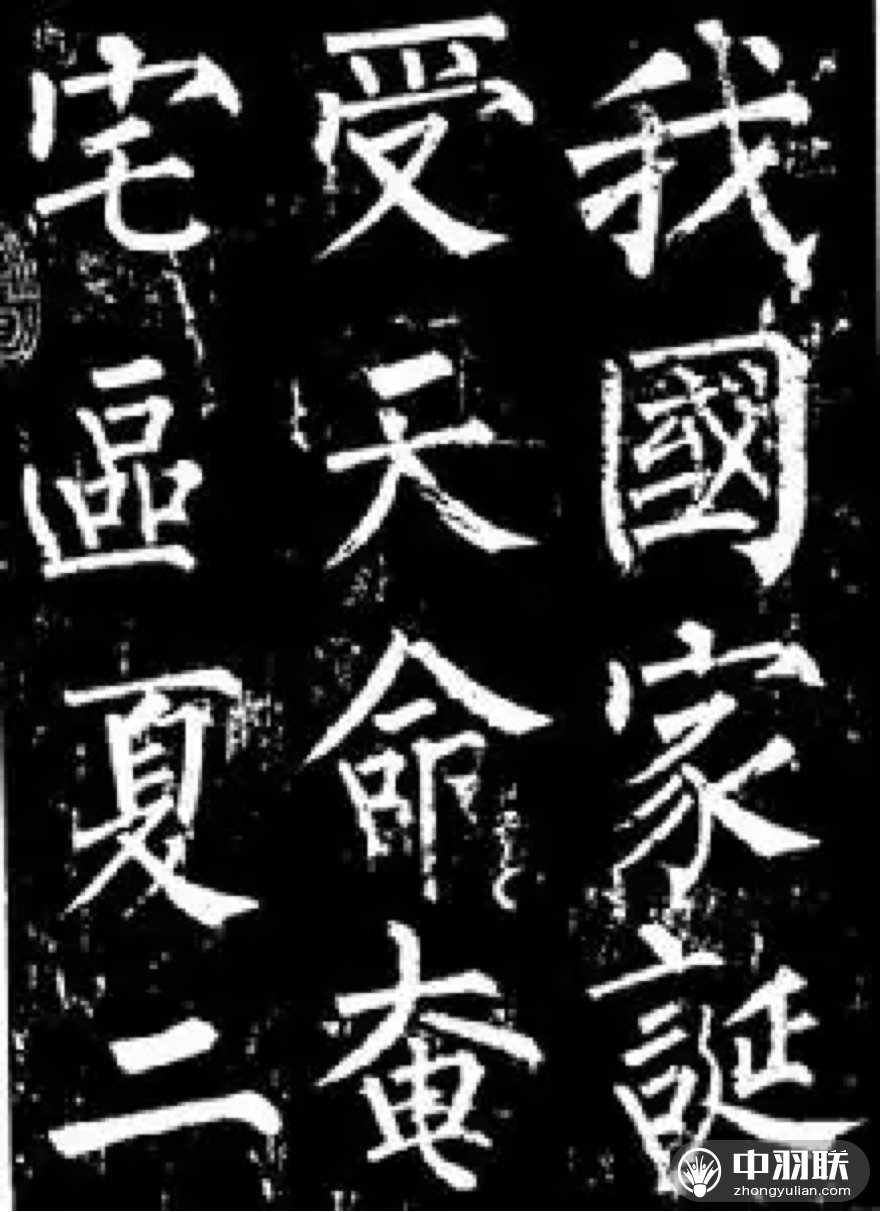 我國家誕
受天命奄
宅區夏二
中羽联
zhongyulian.com